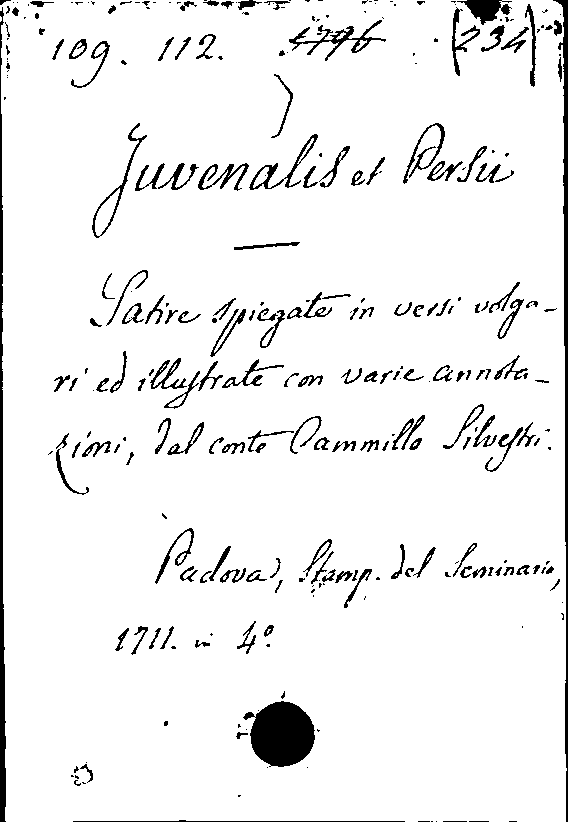 109. 112. 5796 (234)
Juvenalis et Persii
Satire spiegate in versi volga-
ri ed illustrate con varie annota-
zioni, dal conte Cammillo Silvestri.
Padova, Stamp. del Seminario,
1711. in 4º.